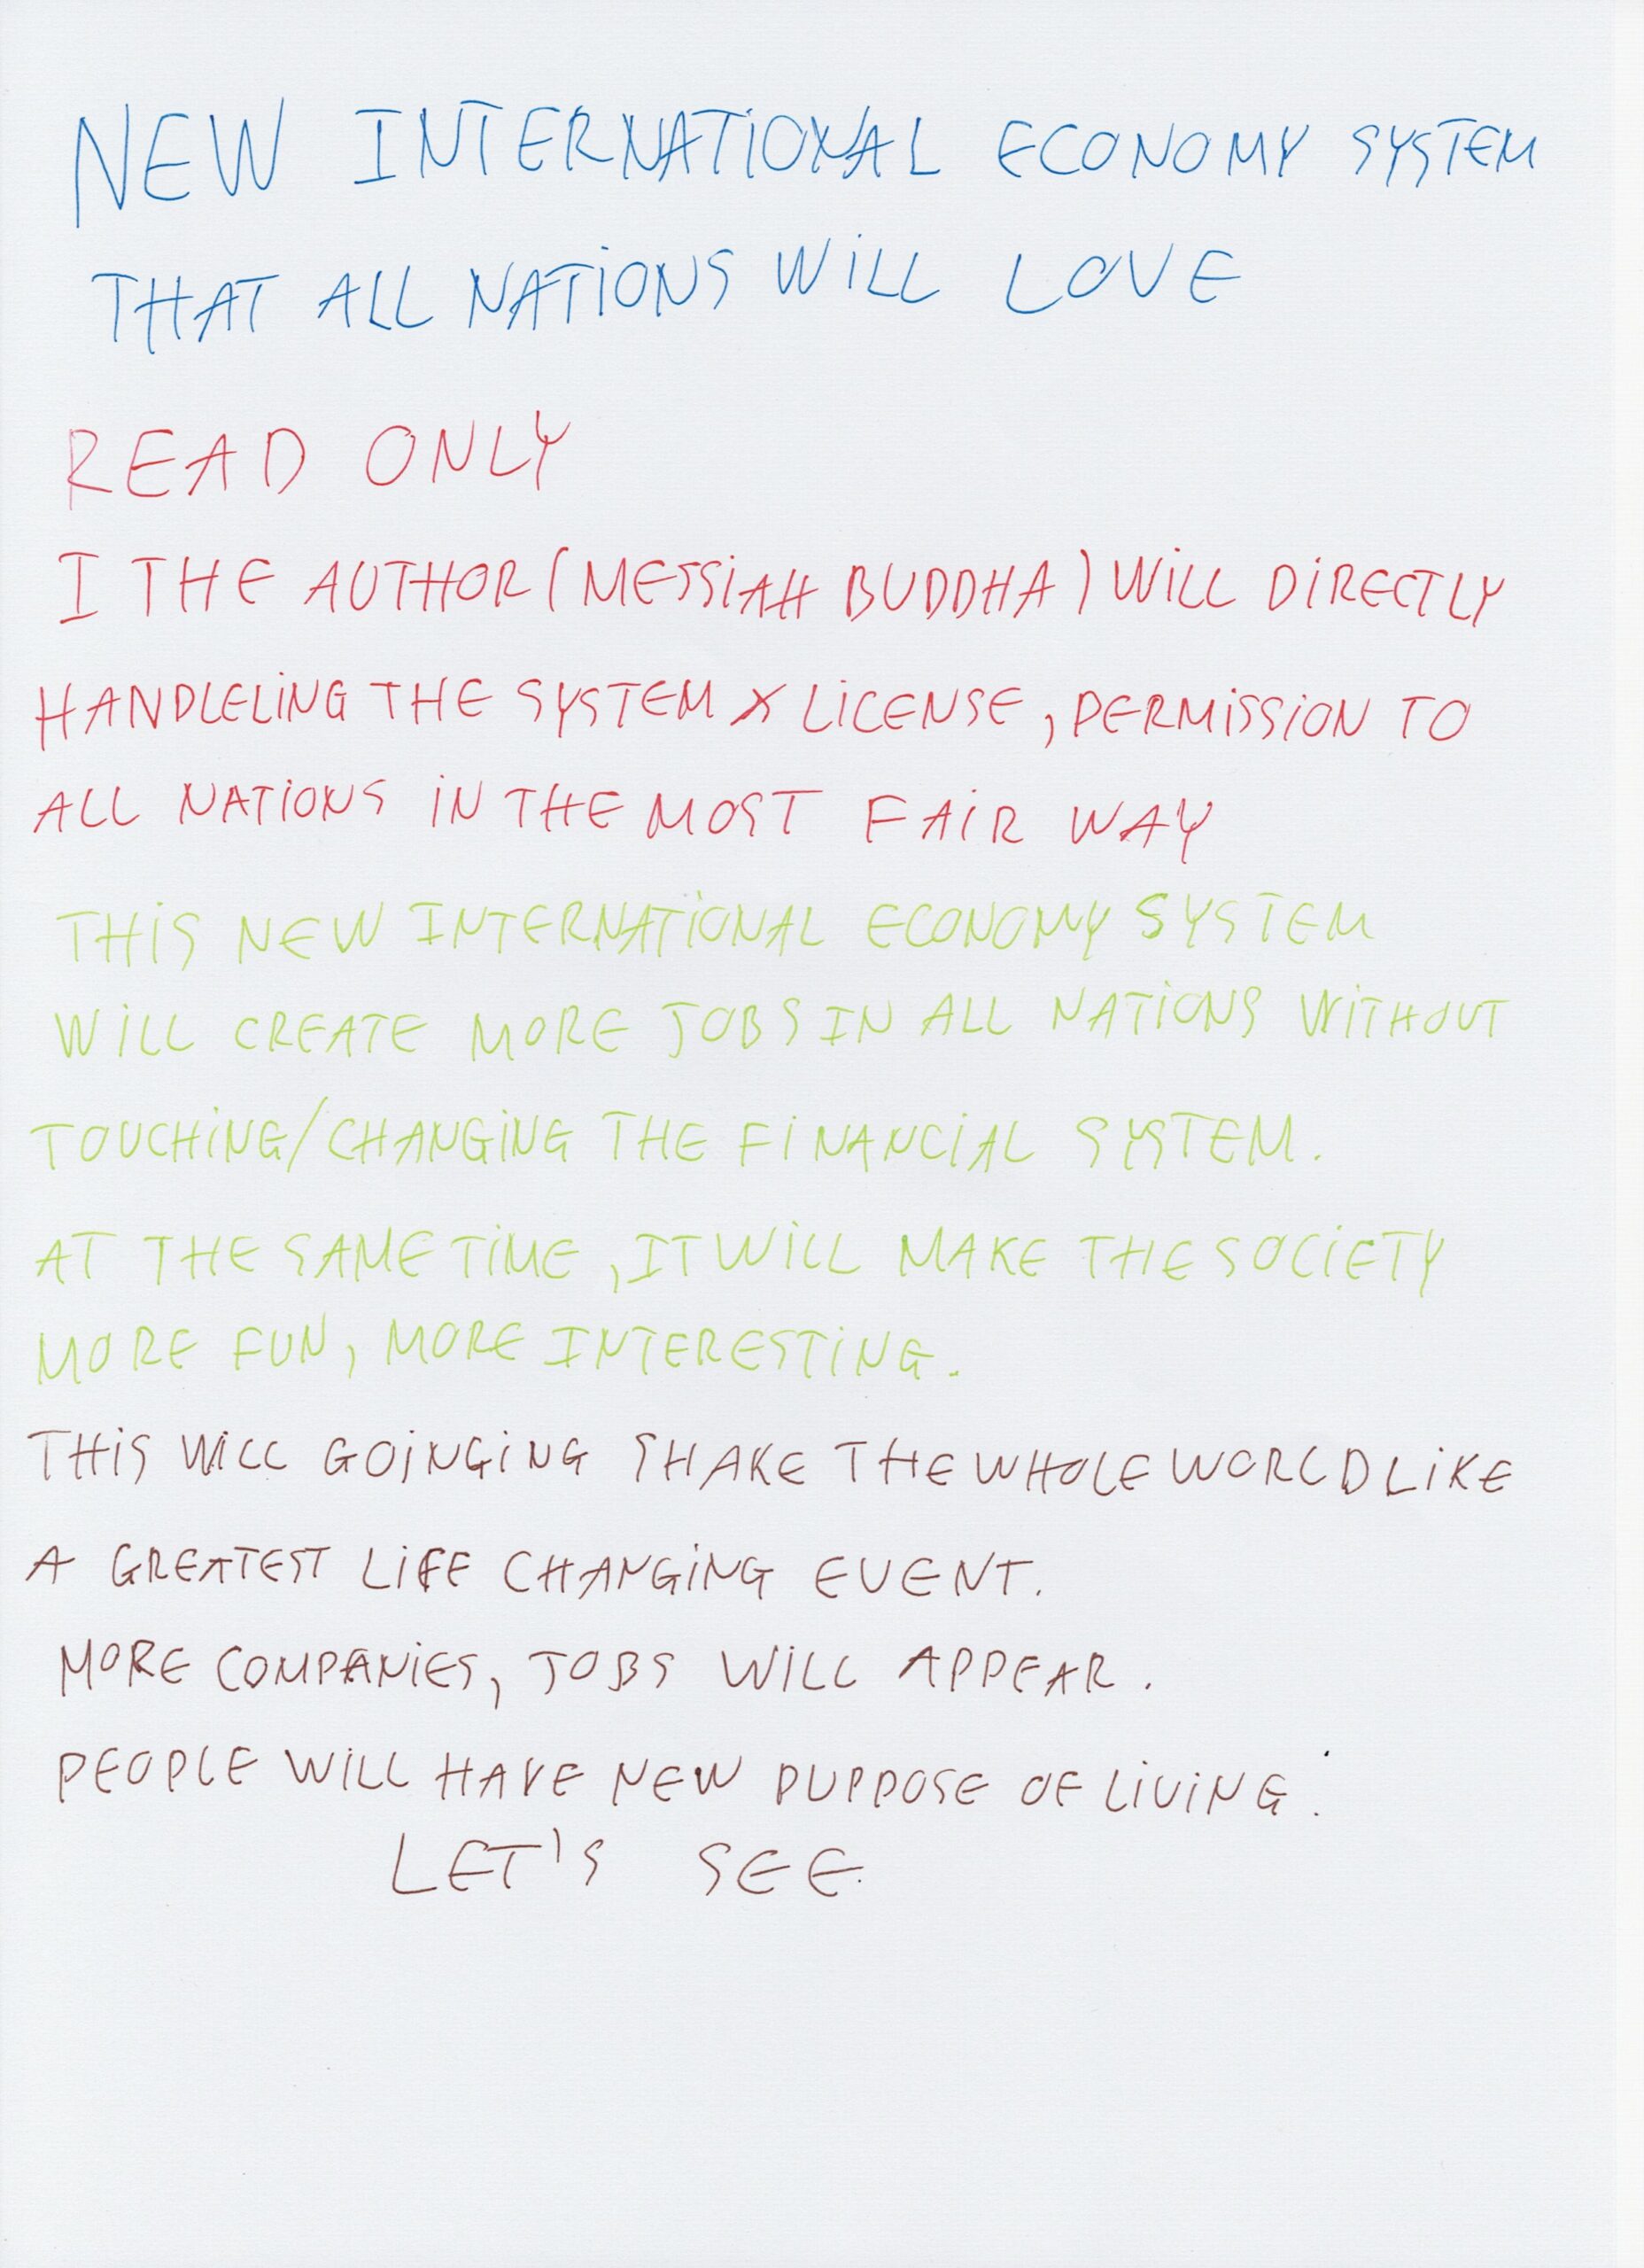 NEW INTERNATIONAL ECONOMY SYSTEM
THAT ALL NATIONS WILL LOVE
READ ONLY
I THE AUTHOR (MESSIAH BUDDHA) WILL DIRECTLY
HANDLELING THE SYSTEM X LICENSE, PERMISSION TO
ALL NATIONS IN THE MOST FAIR WAY
THIS NEW INTERNATIONAL ECONOMY SYSTEM
WILL CREATE MORE JOBS IN ALL NATIONS WITHOUT
TOUCHING/CHANGING THE FINANCIAL SYSTEM.
AT THE SAME TIME, IT WILL MAKE THE SOCIETY
MORE FUN, MORE INTERESTING.
THIS WILL GOINGING SHAKE THE WHOLE WORLD LIKE
A GREATEST LIFE CHANGING EVENT.
MORE COMPANIES, JOBS WILL APPEAR.
PEOPLE WILL HAVE NEW PUPPOSE OF LIVING.
LET'S SEE